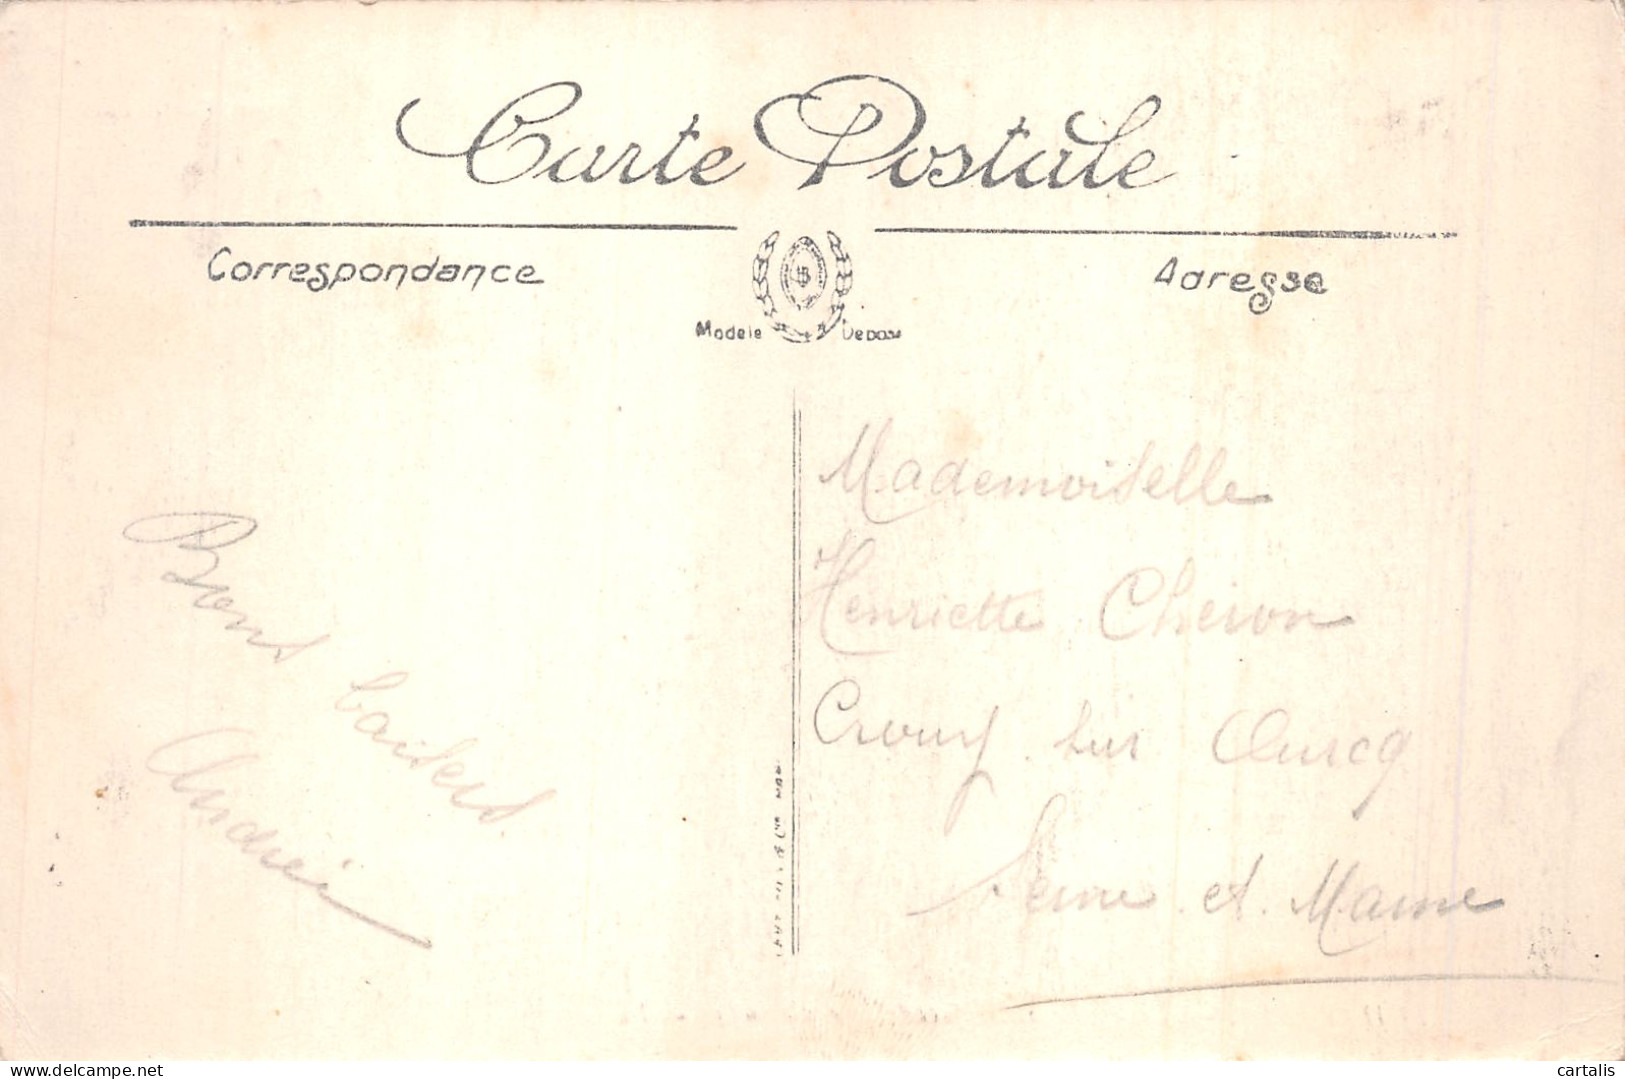 Carte Postale
Correspondance
Adresse
Modele Deposé
Bons baisers
Andrei
Mademoiselle
Henriette Cheron
Crouy sur Ourcq
Seine et Marne
cartalis
delcampe.net